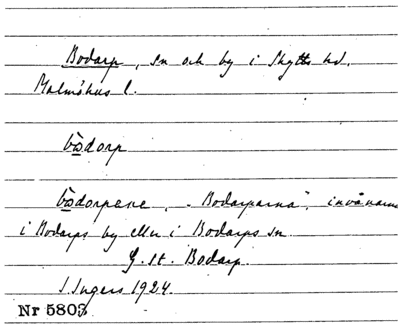 Bodarp, sn och by i Skytts hd.
Malmöhus l.
bòdorp
bòdorpene, „Bodarparna", invånarna
i Bodarps by eller i Bodarps sn
G. st. Bodarp.
I. Ingers 1924.
Nr 5803